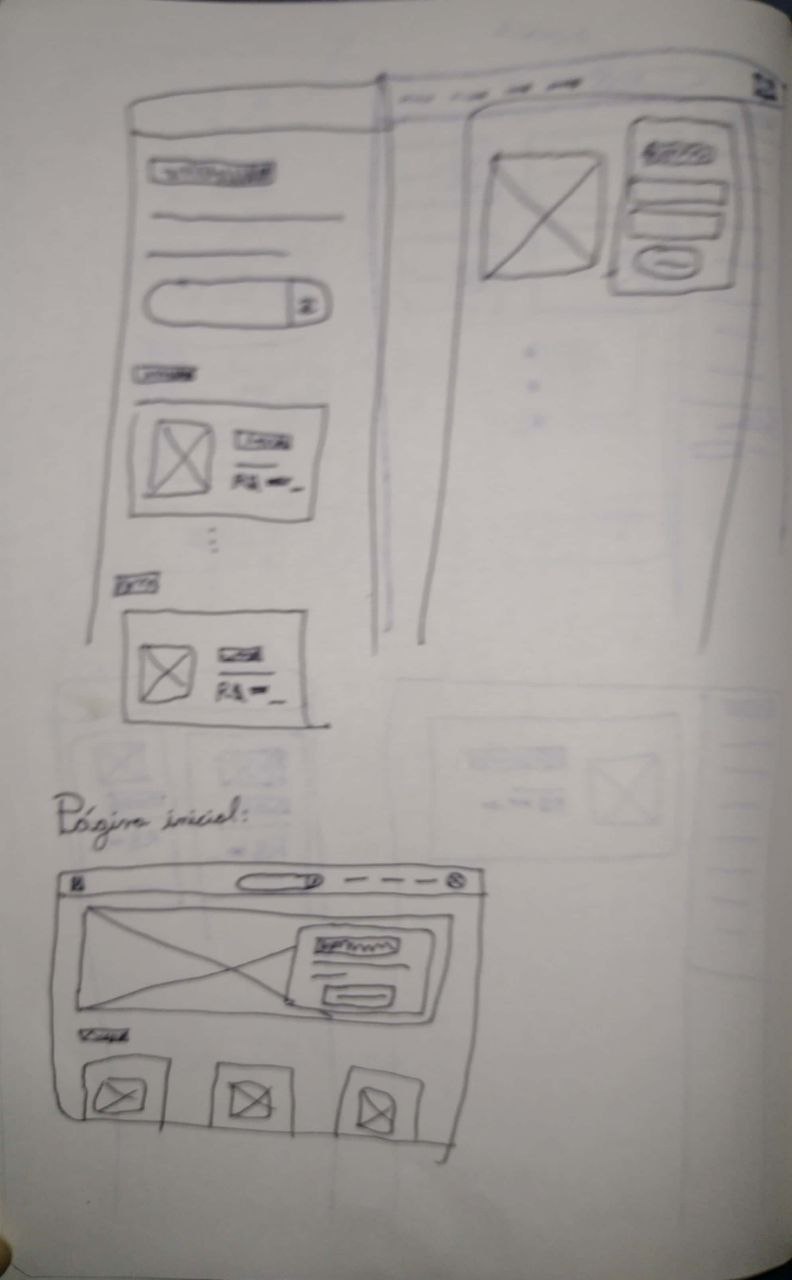 R$
R$
Página inicial: